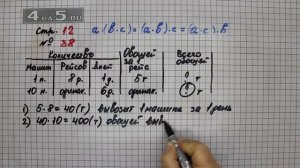 4 - A 5 . R U
стр. 12 a·(b·c)=(a·b)·c=(a·c)·b
№ 38
Количество Овощей за 1 рейс Всего овощей
Машин Рейсов Дней
1 м. 8 р. 1 д. 5 т ? т
10 м. одинак. 6 д. одинак. ? т
1) 5·8=40(т) вывозит 1 машина за 1 день
2) 40·10=400(т) овощей выв